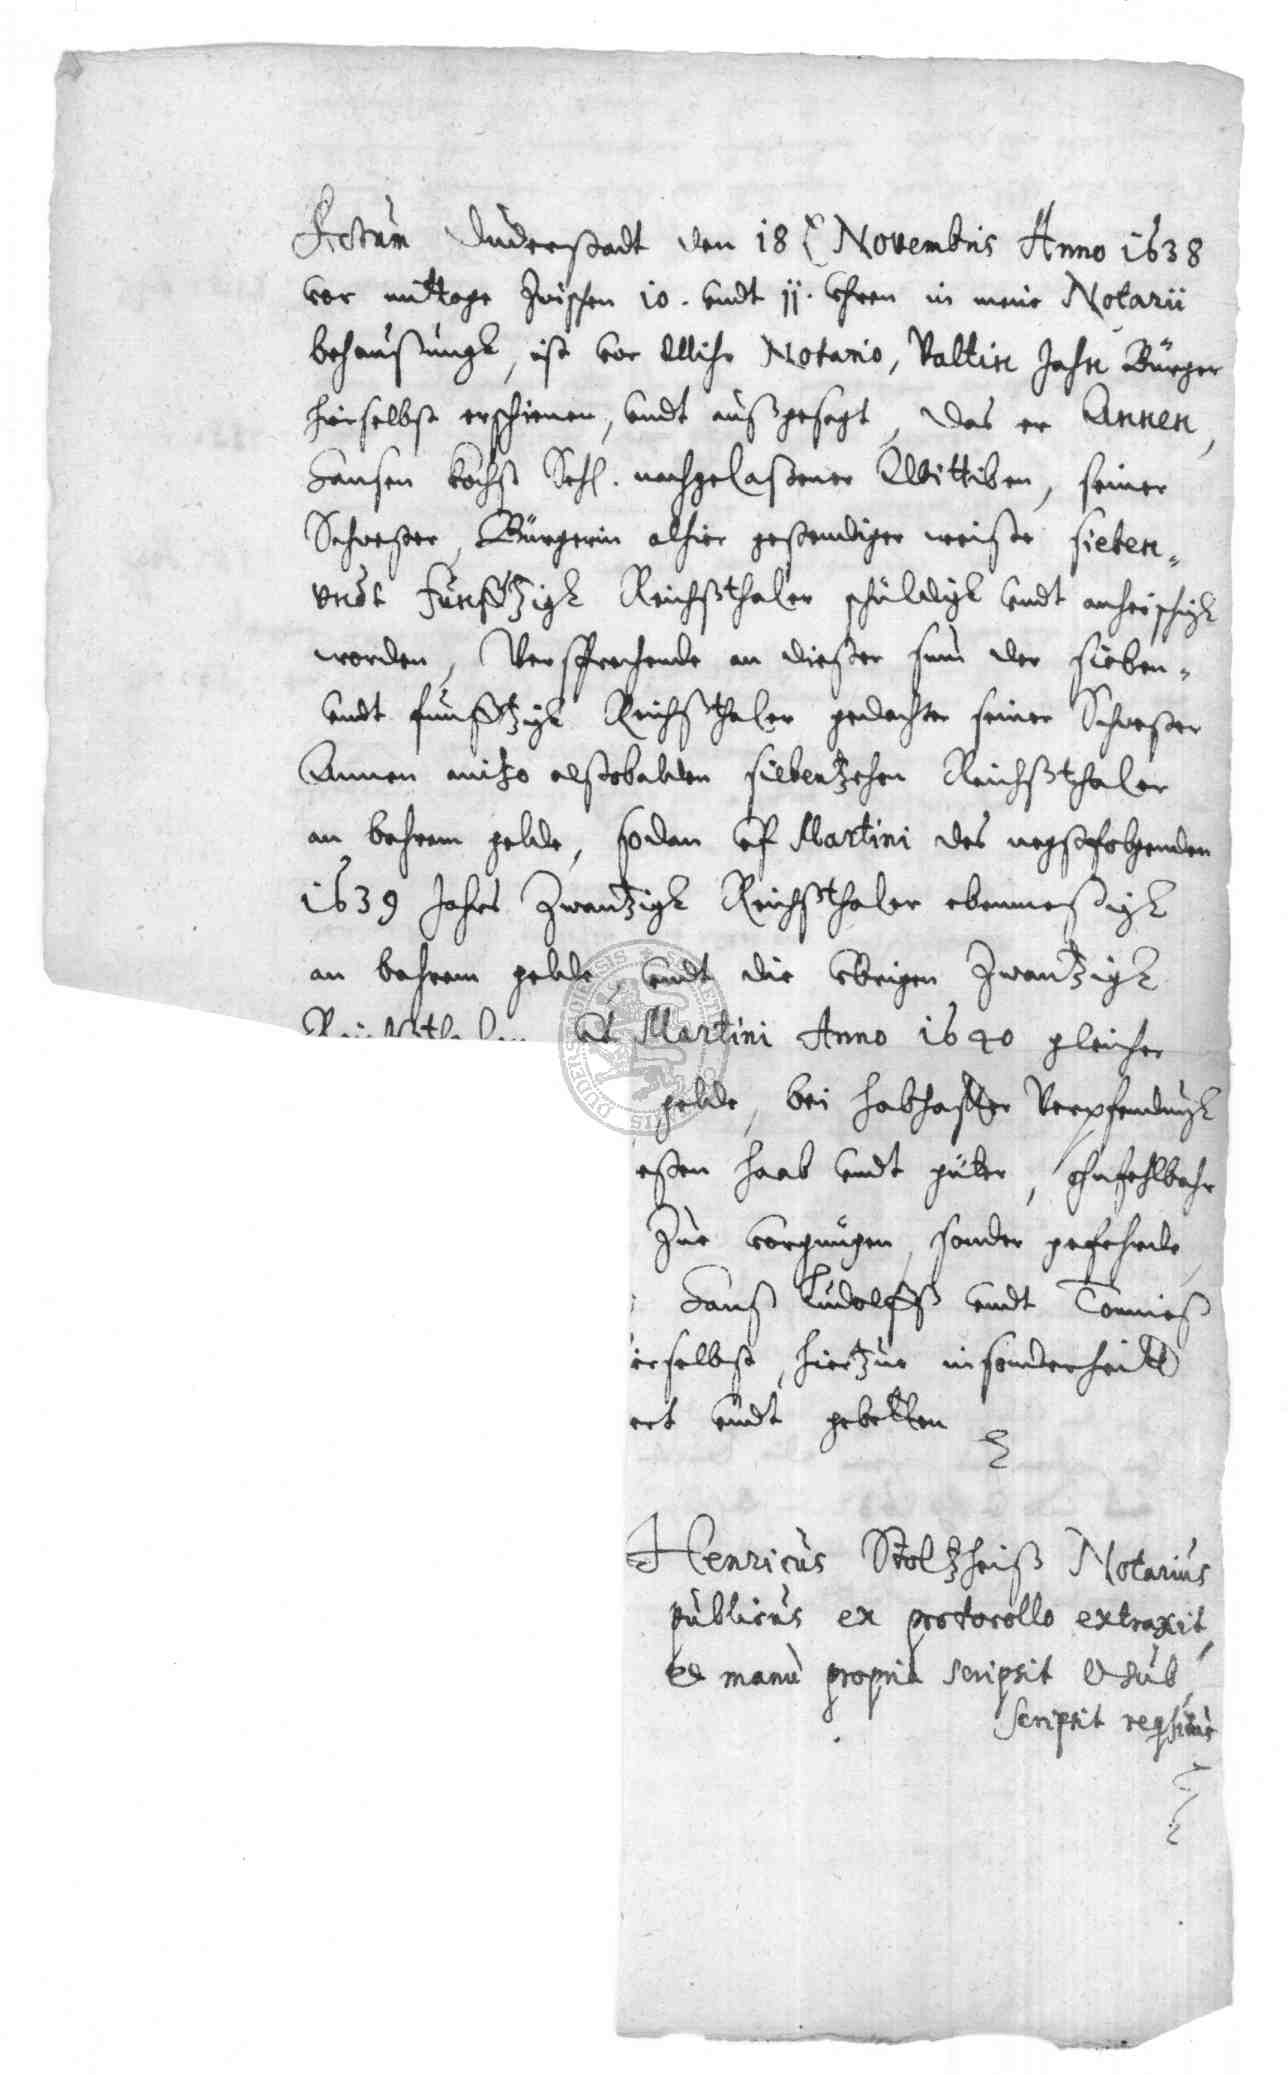 Actum Duderstadt den 18 t. Novembris Anno 1638
vor mittage Zwischen 10. undt 11. Uhren in meine Notarii
behausungk, ist vor Mihr Notario, Valtin Jahn Bürger
hieselbst erschienen, undt außgesagt, das er Annen,
Hansen Kochß Sehl. nachgelaßener Wittiben, seiner
Schwester, Bürgerin alhier gestendiger weiße sieben-
undt Fünfftzigk Reichßthaler schüldigk undt anheischigk
worden, Versprechende an dießer sum der sieben-
undt funfftzigk Reichßthaler gedachter seiner Schwester
Annen anitzo alßobalden siebentzehen Reichßthaler
an bahrem gelde, sodan uf Martini des negstfolgenden
1639 Jahrs Zwantzigk Reichßthaler ebenmeßigk
an bahrem gelde, undt die ubrigen Zwantzigk
Reichßthaler Martini Anno 1640 gleicher
gelde, bei habhaffter Verpfendungk
eßen haab undt güter, ohnfehlbahr
Zue vorgnügen, sonder gefehrde,
Hanß Ludolffß undt Tonnieß
ierselbst, hiertzue insonderheitt
ert undt gebetten
Henricus Stoltzheiß Notarius
publicus ex protocollo extraxit,
et manu propria scripsit & sub
scripsit